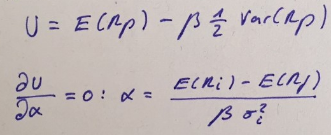 U = E(Rp) - β 1/2 Var(Rp)
∂U/∂α = 0 : α = (E(Ri) - E(Rf)) / (β σi²)